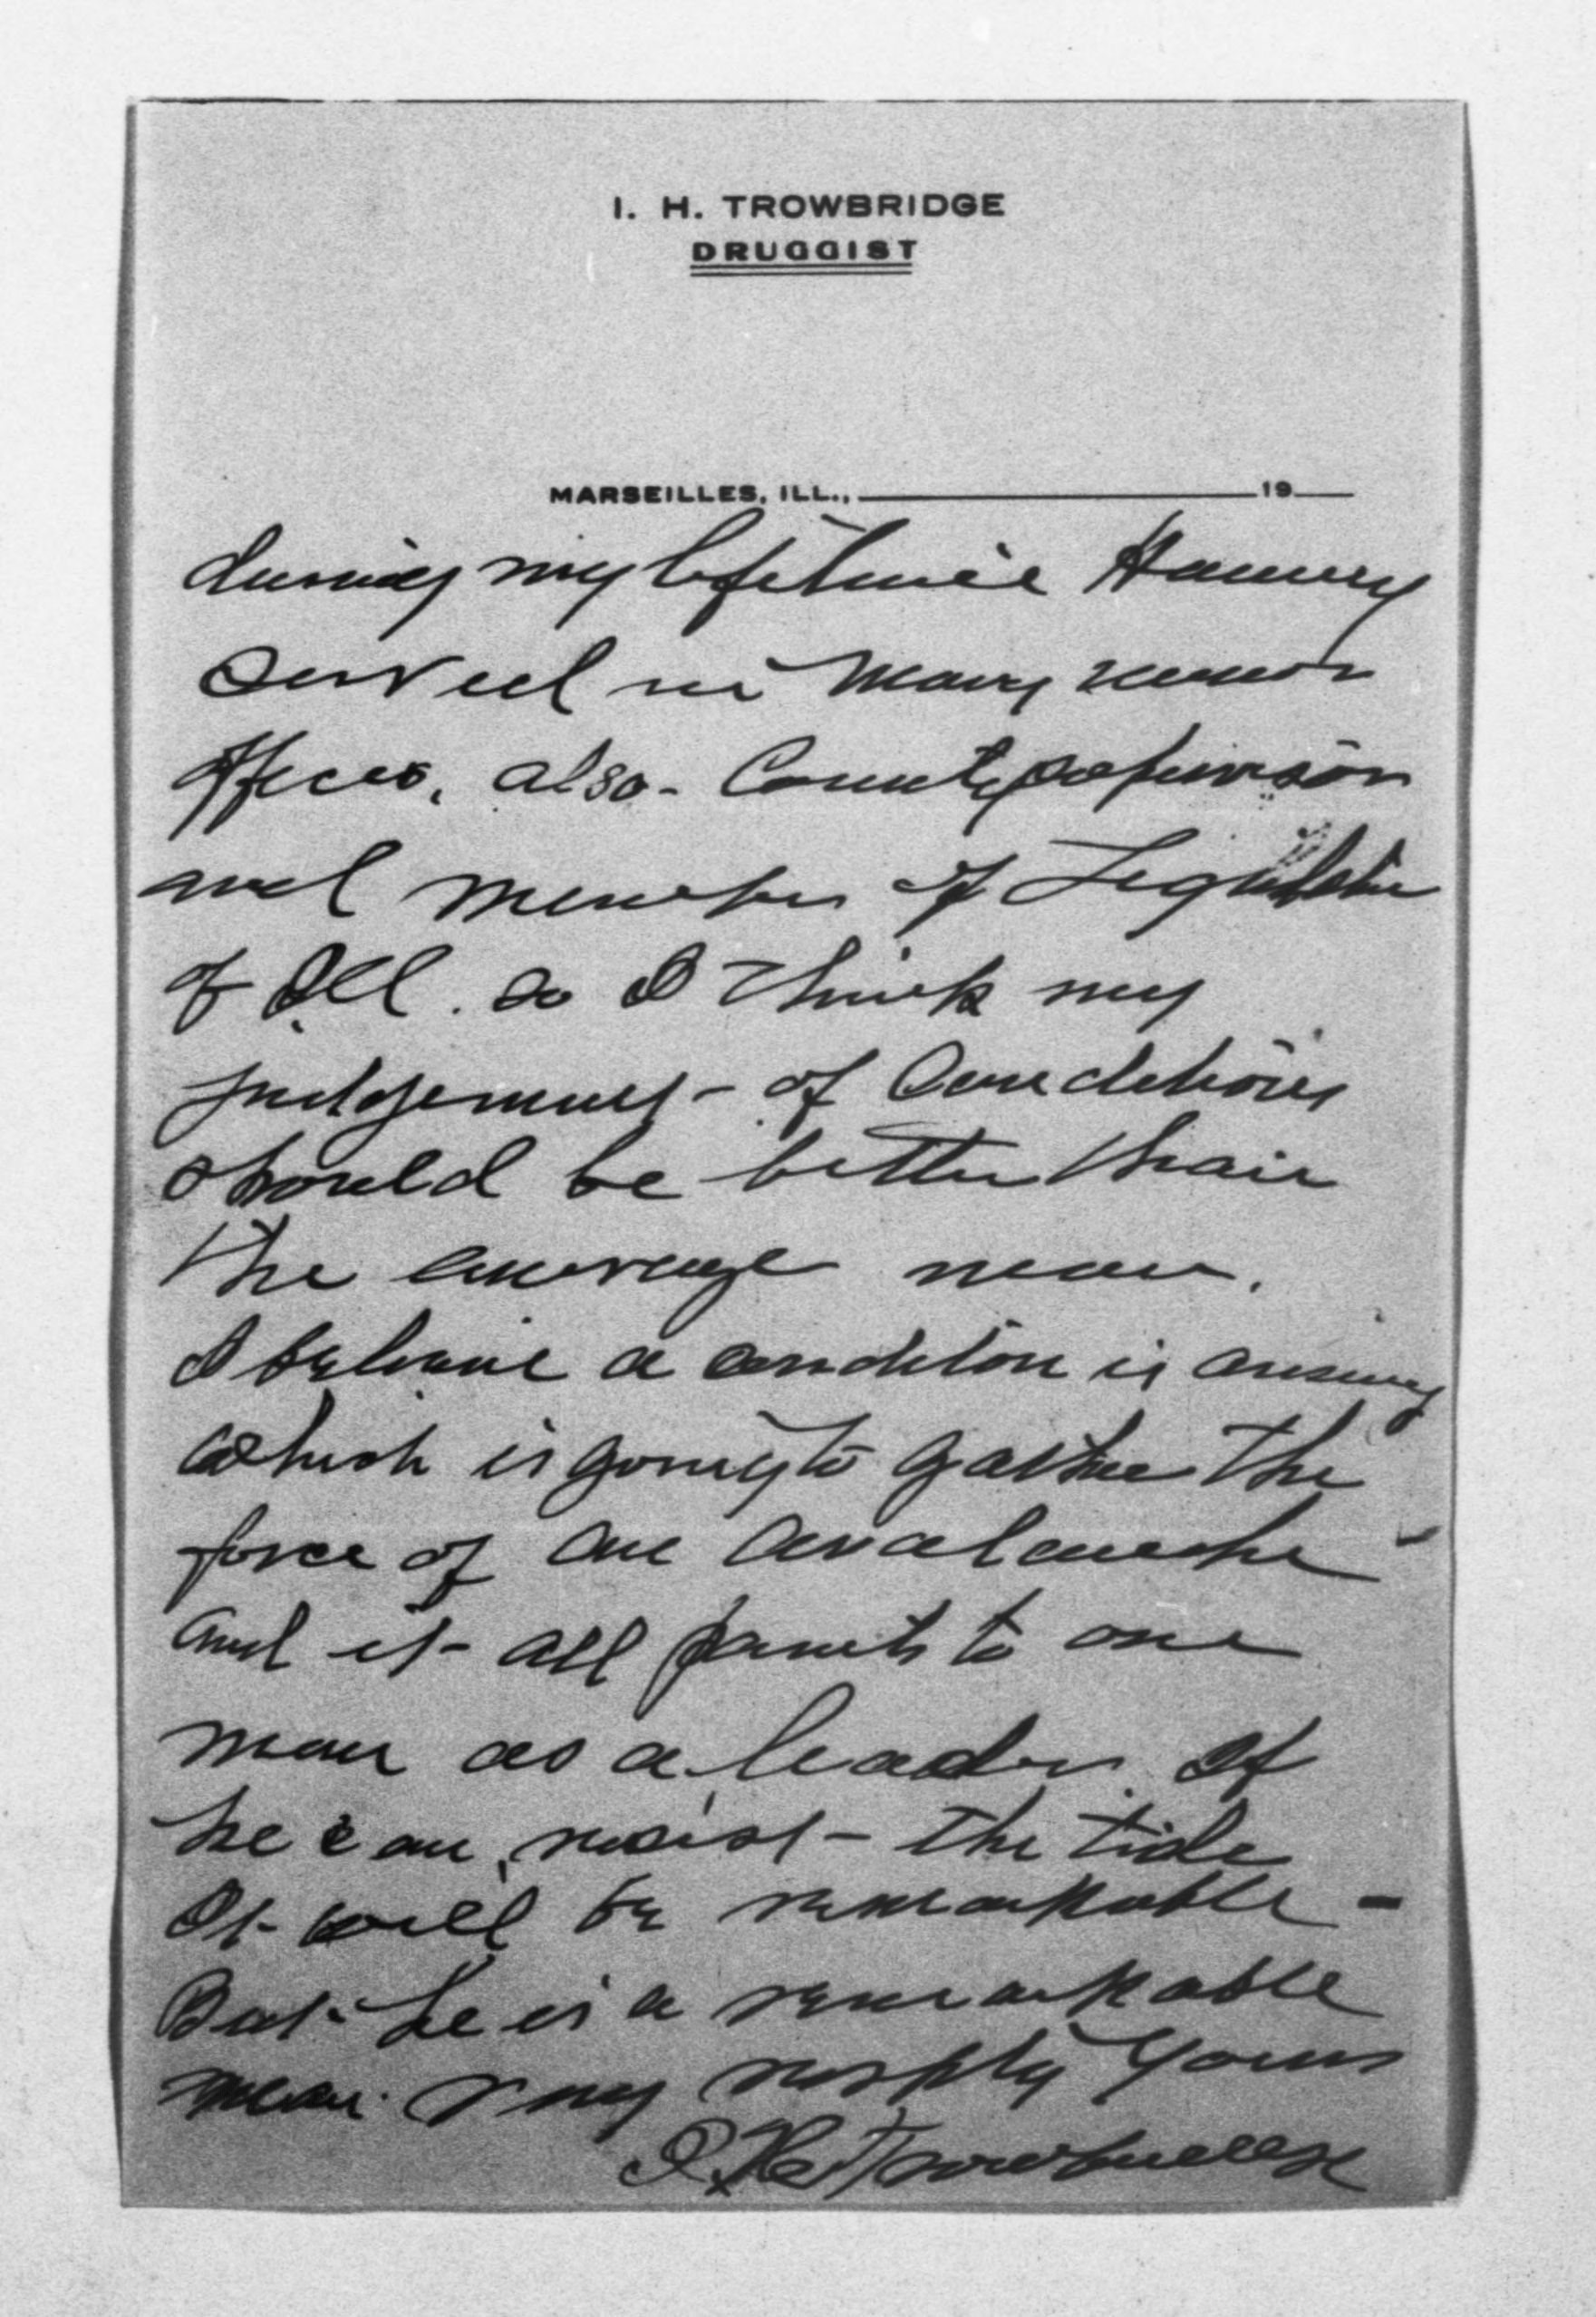 I. H. TROWBRIDGE
DRUGGIST
MARSEILLES, ILL., 19
during my lifetime Haveing
served in many minor
offices, also - County supervisor
and member of Legislature
of Ill. so I think my
judgement - of Conditions
should be better than
the average man.
I believe a condition is arising
which is going to gather the
force of an avalanche -
and it all points to one
man as a leader. If
he can resist - the tide
It will be remarkable -
But he is a remarkable
man. Very resptly Yours
I. H. Trowbridge